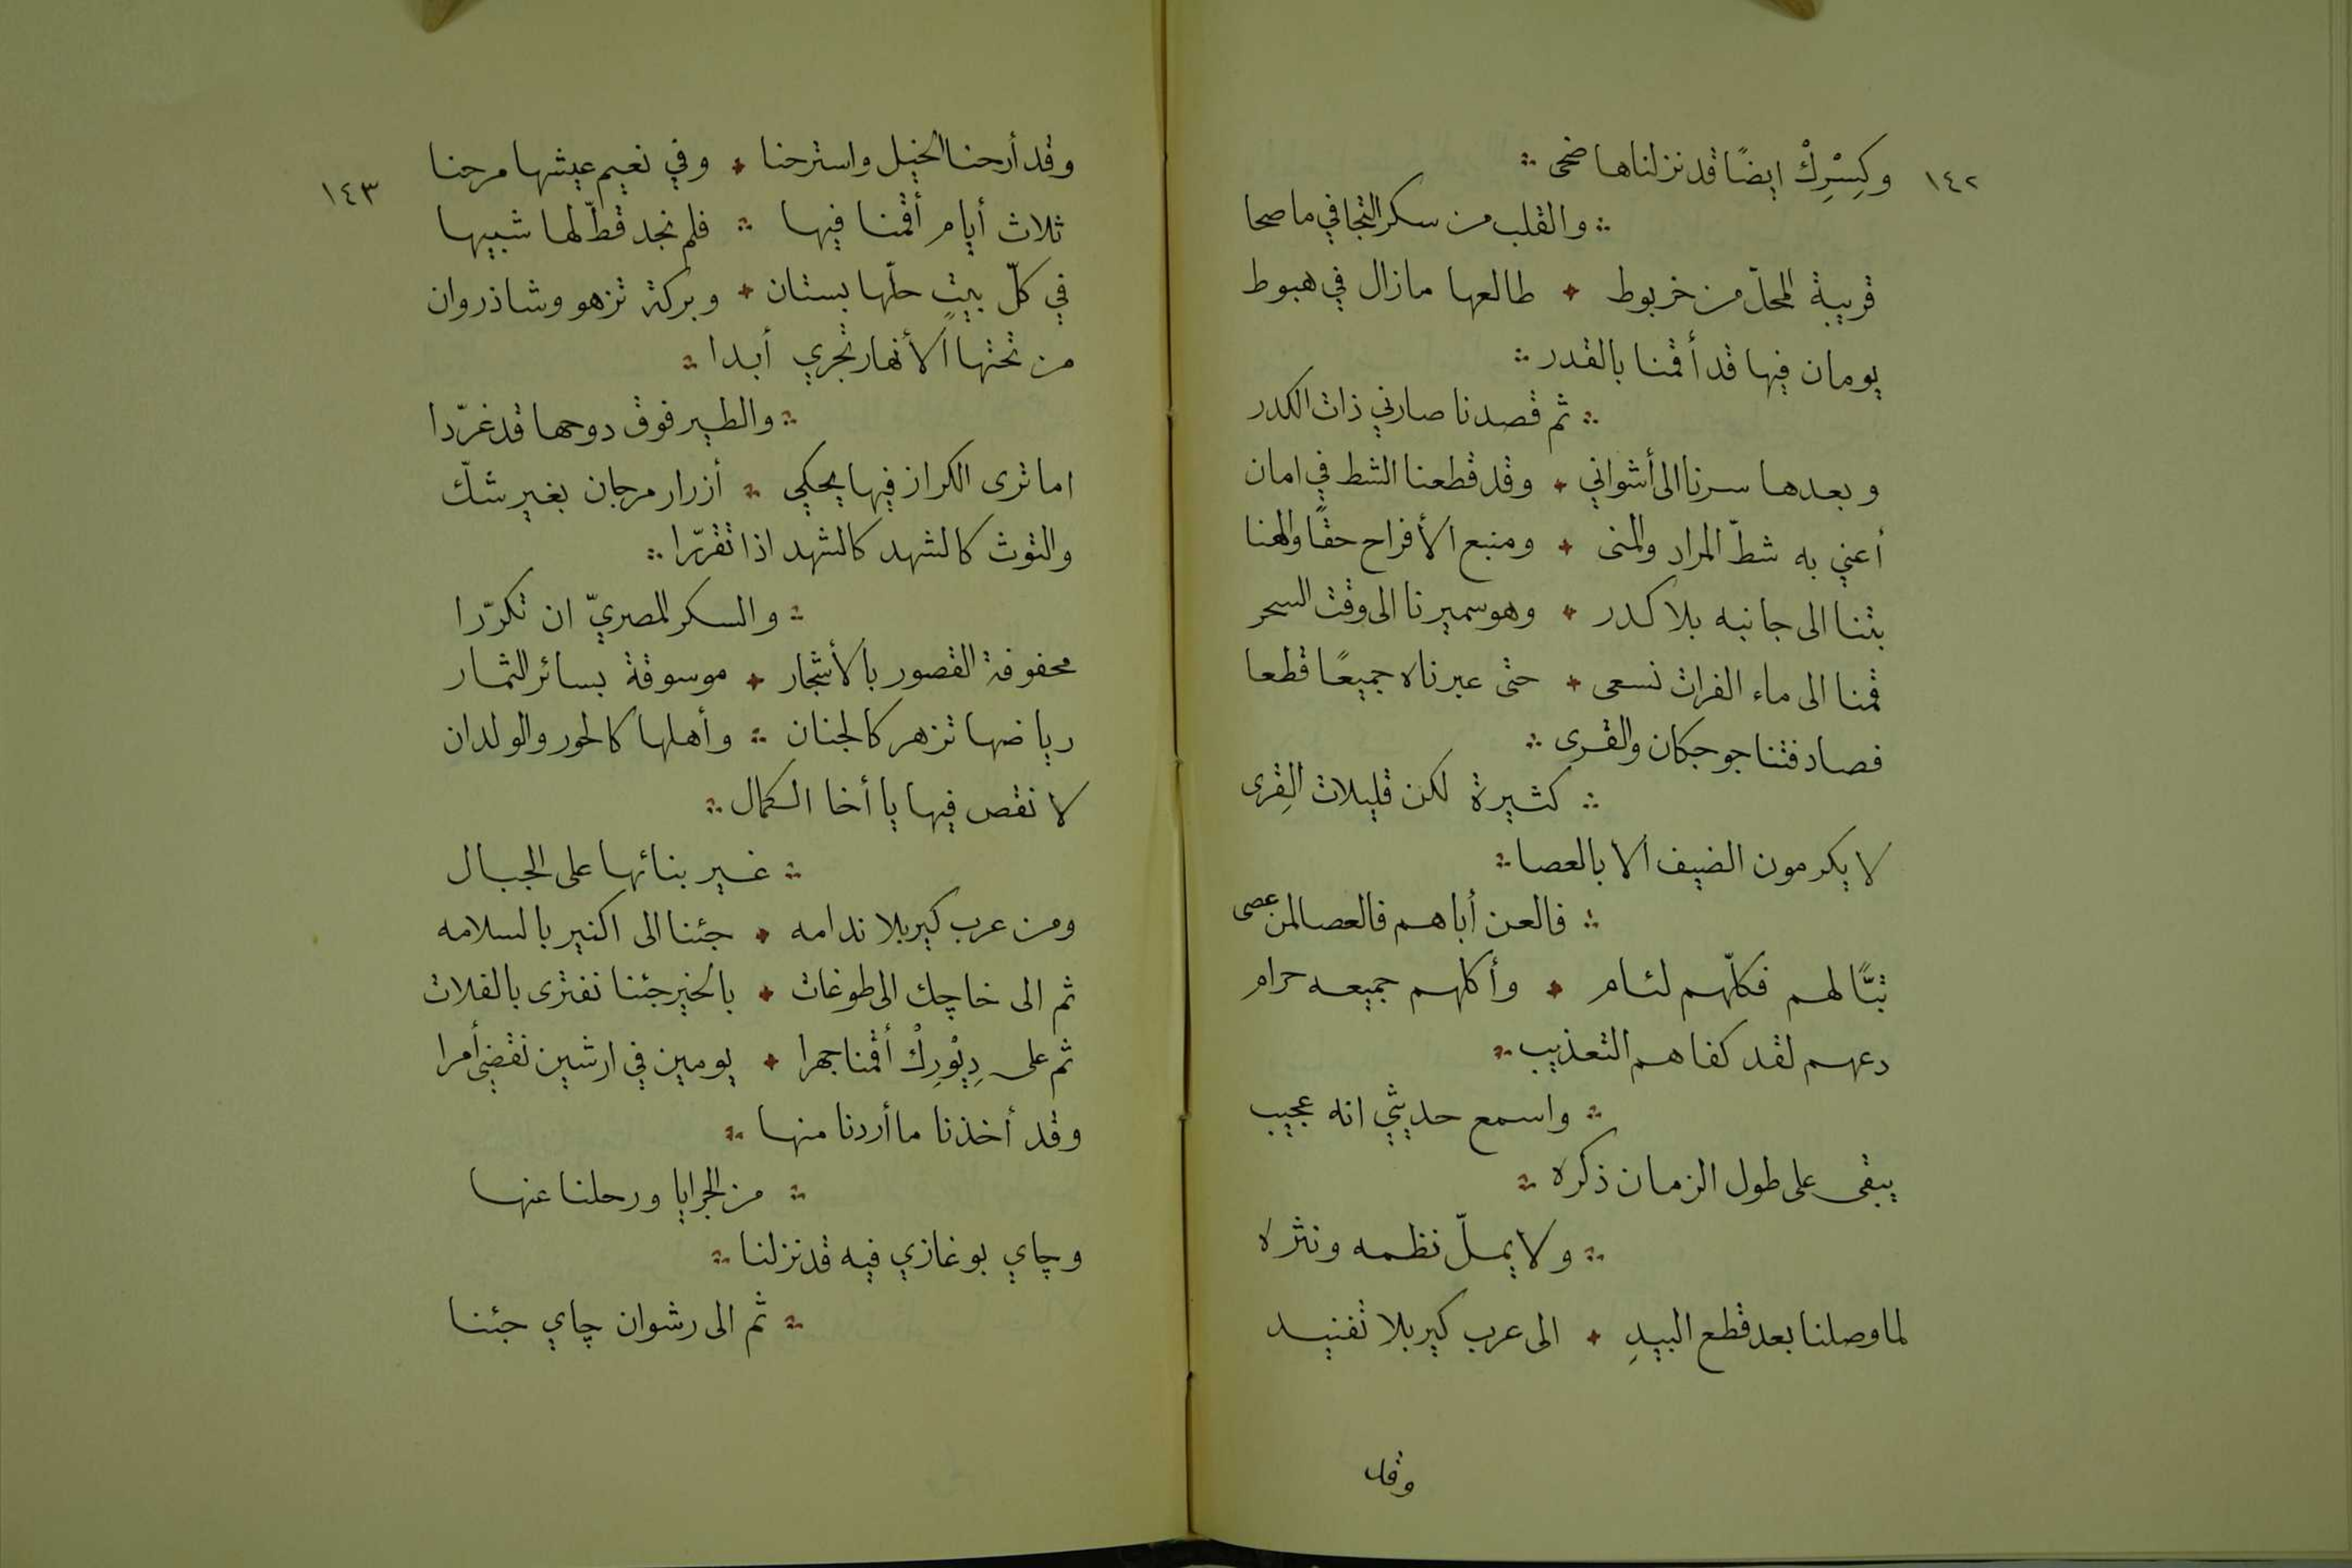 ١٤٢
وكِسْرِكْ ايضًا قد نزلناها ضحى
والقلب من سكر التجافي ما صحا
قريبة المحلّ من خربوط طالعها ما زال في هبوط
يومان فيها قد أقمنا بالقدر
ثم قصدنا صارني ذات الكدر
وبعدها سرنا الى أشواني وقد قطعنا الشط في امان
أعني به شطّ المراد والمنى ومنبع الأفراح حقًا والهنا
بتنا الى جانبه بلا كدر وهو سميرنا الى وقت السحر
قمنا الى ماء الفرات نسعى حتى عبرناه جميعًا قطعا
فصادفتنا جوجكان والقرى
كثيرة لكن قليلات القِرى
لا يكرمون الضيف الا بالعصا
فالعن أباهم فالعصا لمن عصى
تبًّا لهم فكلّهم لئام وأكلهم جميعه حرام
دعهم لقد كفاهم التعذيب
واسمع حديثي انه عجيب
يبقى على طول الزمان ذكره
ولا يملّ نظمه ونثره
لما وصلنا بعد قطع البيدِ الى عرب كير بلا تفنيد
وقد
١٤٣
وقد أرحنا الخيل واسترحنا وفي نعيم عيشها مرحنا
ثلاث أيام أقمنا فيها فلم نجد قطّ لها شبيها
في كلّ بيتٍ حلّها بستان وبركة تزهو وشاذروان
من تحتها الأنهار تجري أبدا
والطير فوق دوحها قد غرّدا
اما ترى الكراز فيها يحكي أزرار مرجان بغير شكّ
والتوث كالشهد كالشهد اذا تقرّرا
والسكر المصريّ ان تكرّرا
محفوفة القصور بالأشجار موسوقة بسائر الثمار
رياضها تزهر كالجنان وأهلها كالحور والولدان
لا نقص فيها يا أخا الكمال
غير بنائها على الجبال
ومن عرب كير بلا ندامه جئنا الى اكنير بالسلامه
ثم الى خاچك الى طوغات بالخير جئنا نفترى بالفلات
ثم على دِيْوْرِكْ أقمنا جهرا يومين في ارشين نقضي أمرا
وقد أخذنا ما أردنا منها
من الجرايا ورحلنا عنها
وچاي بوغازي فيه قد نزلنا
ثم الى رشوان چاي جئنا